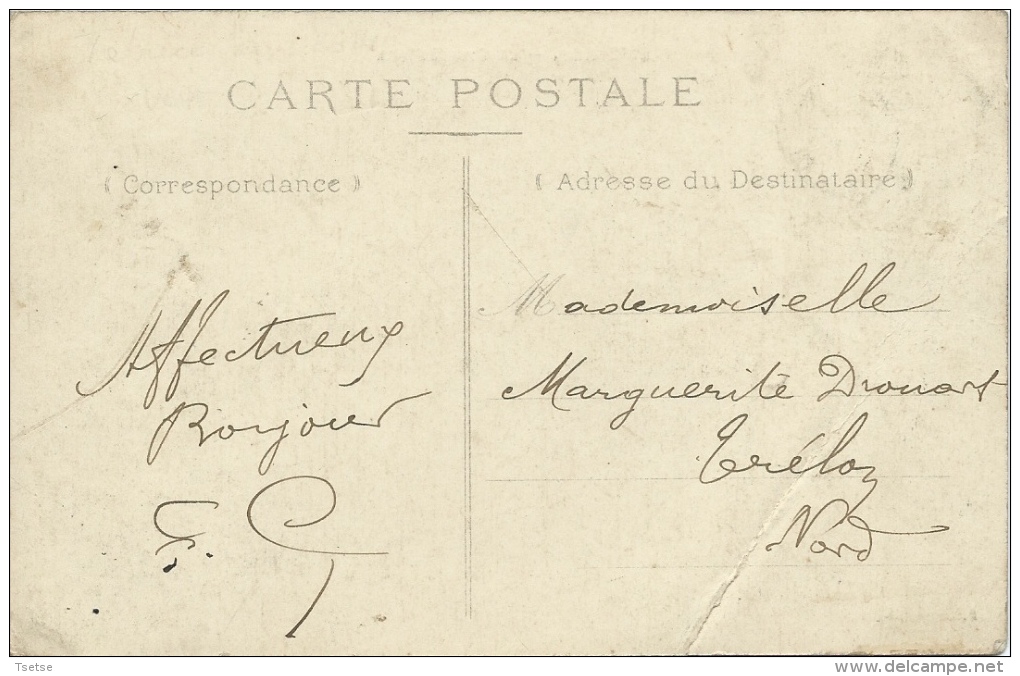 CARTE POSTALE
(Correspondance)
(Adresse du Destinataire)
Affectueux
Bonjour
F. G
Mademoiselle
Marguerite Drouart
Trélon
Nord
Tsetse
www.delcampe.net